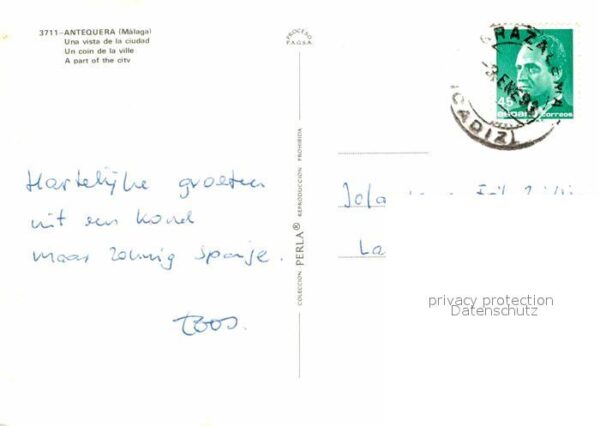 3711-ANTEQUERA (Málaga)
Una vista de la ciudad
Un coin de la ville
A part of the city
PROCESO
P.A.G.S.A.
COLECCION PERLA® REPRODUCCION PROHIBIDA
GRAZALEMA
ENE
(CADIZ)
45
España
correos
Hartelijke groeten
uit een koud
maar zonnig spanje.
Toos.
Jola
La
privacy protection
Datenschutz